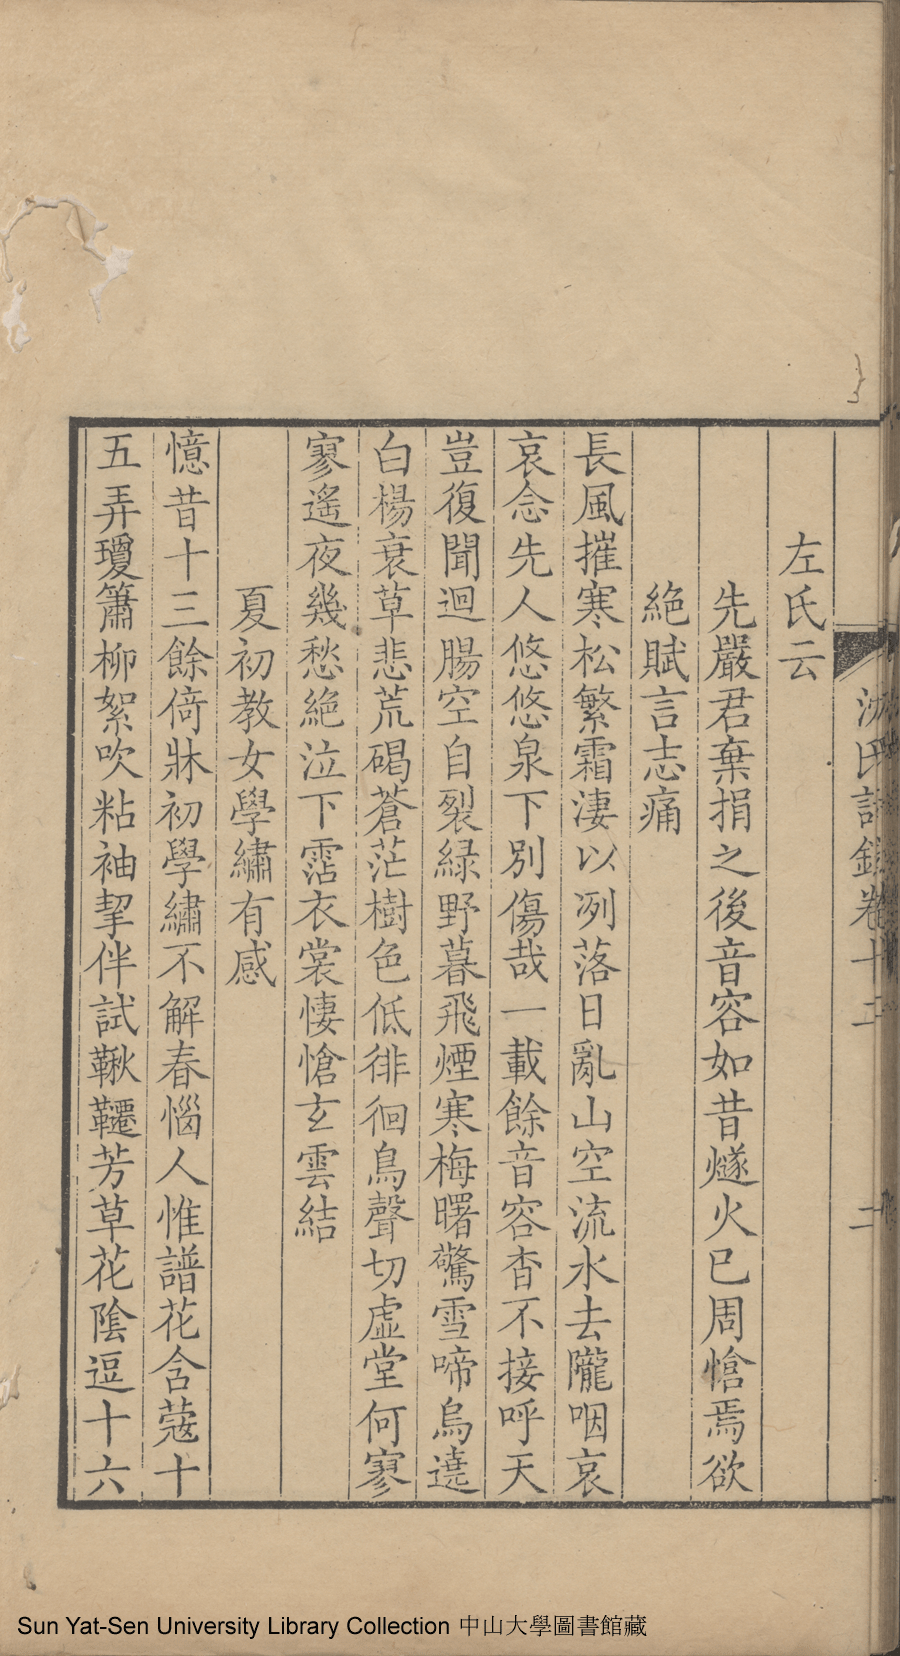 沈氏詩錄卷十二 二
左氏云
先嚴君棄捐之後音容如昔燧火已周愴焉欲
絕賦言志痛
長風摧寒松繁霜淒以冽落日亂山空流水去隴咽哀
哀念先人悠悠泉下別傷哉一載餘音容杳不接呼天
豈復聞迴腸空自裂緑野暮飛煙寒梅曙驚雪啼烏遶
白楊衰草悲荒碣蒼茫樹色低徘徊鳥聲切虛堂何寥
寥遙夜幾愁絕泣下霑衣裳悽愴玄雲結
夏初教女學繡有感
憶昔十三餘倚牀初學繡不解春惱人惟譜花含蔻十
五弄瓊簫柳絮吹粘袖挈伴試鞦韆芳草花陰逗十六
Sun Yat-Sen University Library Collection 中山大學圖書館藏